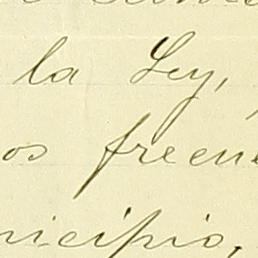 la Ley,
os frecue
nicipio,